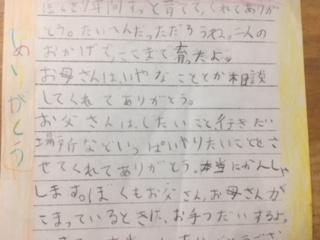 年間ずっと育てて、くれてありが
とう。たいへんだっただろうね。二人の
おかげで、ここまで育ったよ。
お母さんは、いやなこととか相談
してくれてありがとう。
お父さんは、したいこと行きだい
場所などいっぱいやりたいことをさ
せてくれてありがとう。本当にかんしゃ
します。ぼくもお父さん、お母さんが
こまっているときは、お手つだいするよ。